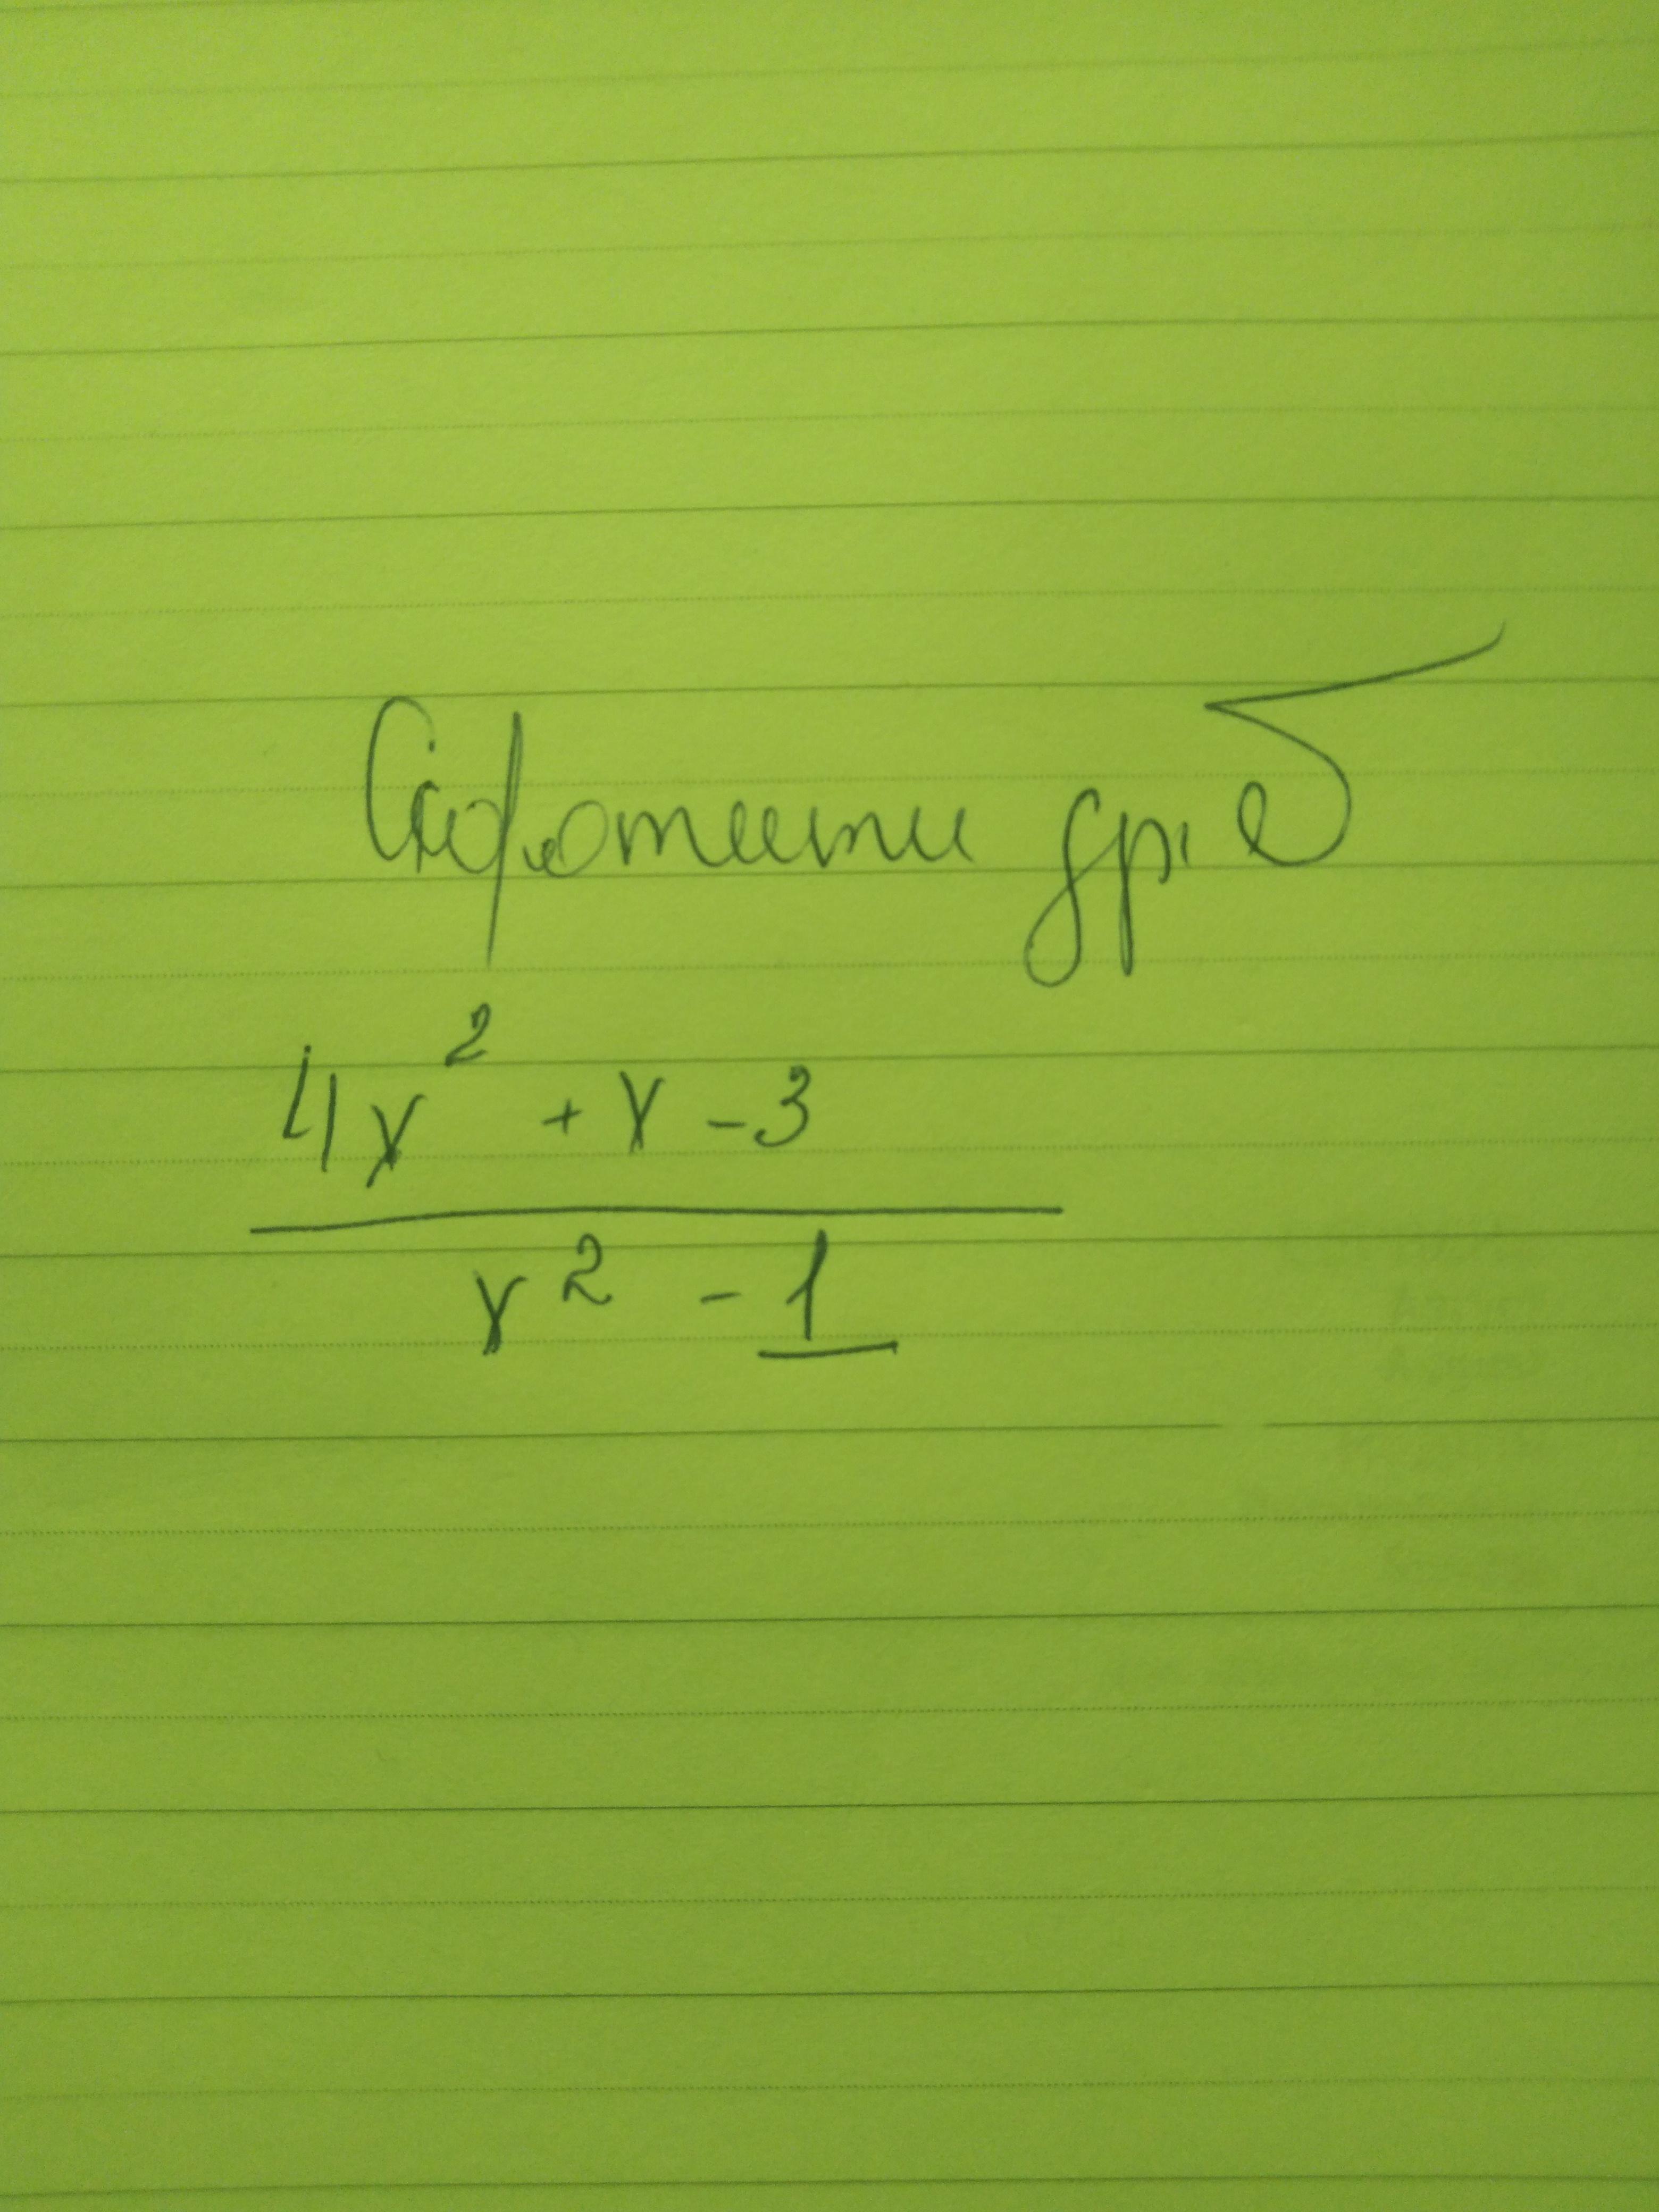 Скоротити дріб
4x² + x - 3
x² - 1